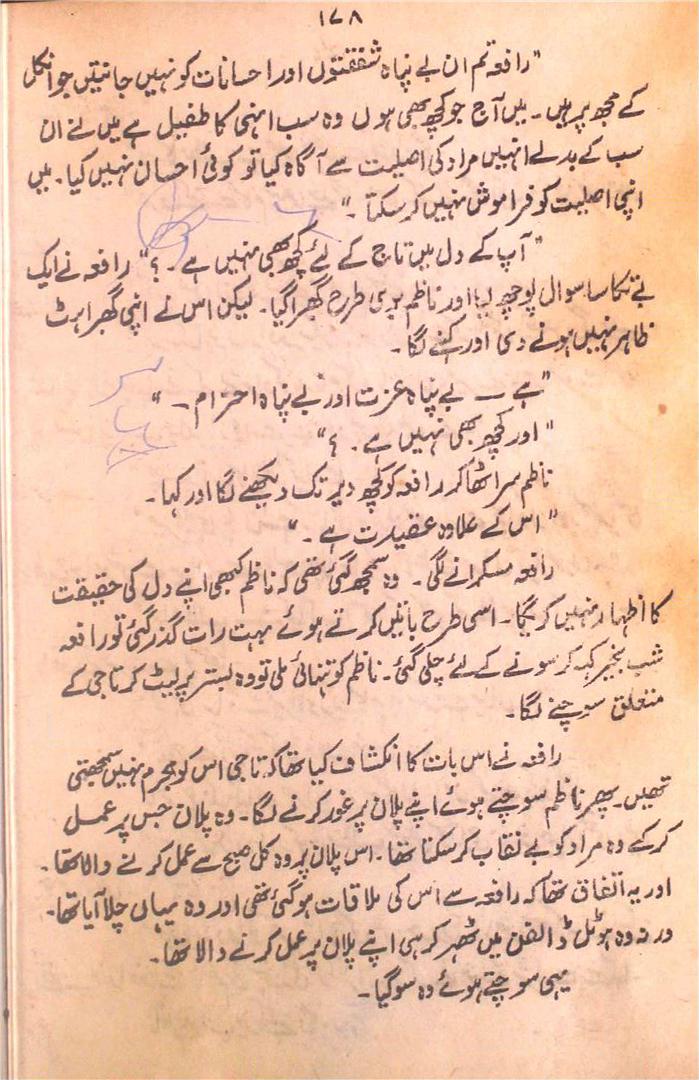 ۱۷۸
"رافعہ تم ان بے پناہ شفقتوں اور احسانات کو نہیں جانتیں جو انکل
کے مجھ پر ہیں۔ میں آج جو کچھ بھی ہوں وہ سب انہی کا طفیل ہے میں نے ان
سب کے بدلے انہیں مراد کی اصلیت سے آگاہ کیا تو کوئی احسان نہیں کیا۔ میں
اپنی اصلیت کو فراموش نہیں کر سکتا۔"
"آپ کے دل میں تاج کے لئے کچھ بھی نہیں ہے۔؟" رافعہ نے ایک
بے تکا سا سوال پوچھ لیا اور ناظم بری طرح گھبرا گیا۔ لیکن اس نے اپنی گھبراہٹ
ظاہر نہیں ہونے دی اور کہنے لگا۔
"ہے ــ بے پناہ عزت اور بے پناہ احترام ــ"
"اور کچھ بھی نہیں ہے۔؟"
ناظم سر اٹھا کر رافعہ کو کچھ دیر تک دیکھنے لگا اور کہا۔
"اس کے علاوہ عقیدت ہے۔"
رافعہ مسکرانے لگی۔ وہ سمجھ گئی تھی کہ ناظم کبھی اپنے دل کی حقیقت
کا اظہار نہیں کریگا۔ اسی طرح باتیں کرتے ہوئے بہت رات گذر گئی تو رافعہ
شب بخیر کہہ کر سونے کے لئے چلی گئی۔ ناظم کو تنہائی ملی تو وہ بستر پر لیٹ کر تاجی کے
متعلق سوچنے لگا۔
رافعہ نے اس بات کا انکشاف کیا تھا کہ تاجی اس کو مجرم نہیں سمجھتی
تھیں۔ پھر ناظم سوچتے ہوئے اپنے پلان پر غور کرنے لگا۔ وہ پلان جس پر عمل
کر کے وہ مراد کو بے نقاب کر سکتا تھا۔ اس پلان پر وہ کل صبح سے عمل کرنے والا تھا۔
اور یہ اتفاق تھا کہ رافعہ سے اس کی ملاقات ہو گئی تھی اور وہ یہاں چلا آیا تھا۔
ورنہ وہ ہوٹل ڈالفن میں ٹھہر کر ہی اپنے پلان پر عمل کرنے والا تھا۔
یہی سوچتے ہوئے وہ سو گیا۔